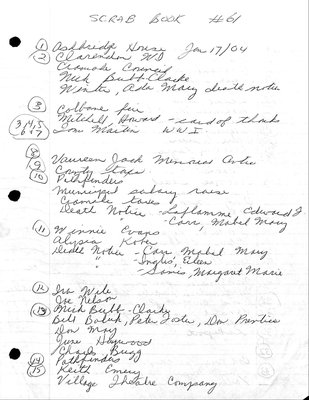 SCRAB BOOK #61
① Ashbridge House Jan 17/04
② Clarendon WD
Council
Nick Bubb-Clarke
Winter, Ada Mary death notice
③
3, 4, 5, 6 + 7
Mitchell, Howard - card of thanks
Martin WWI
⑧
⑨ Vaureen Jack Memorial
County taxes
⑩ Pathfinders
Municipal salary raise
taxes
Death Notice - Laflamme, Edward J
- Carr, Mabel Mary
⑪ Winnie Evans
Alyssa
Death Notice - Carr, Mabel Mary
" - Inglis, Eileen
- Margaret Marie
⑫ Ira
Joe Nelson
⑬ Nick Bubb-Clarke
Bill Peter Foster, Don Prentice
Don May
June Haywood
Charles Bugg
⑭ Pathfinders
⑮ Keith Emery
Village Theatre Company